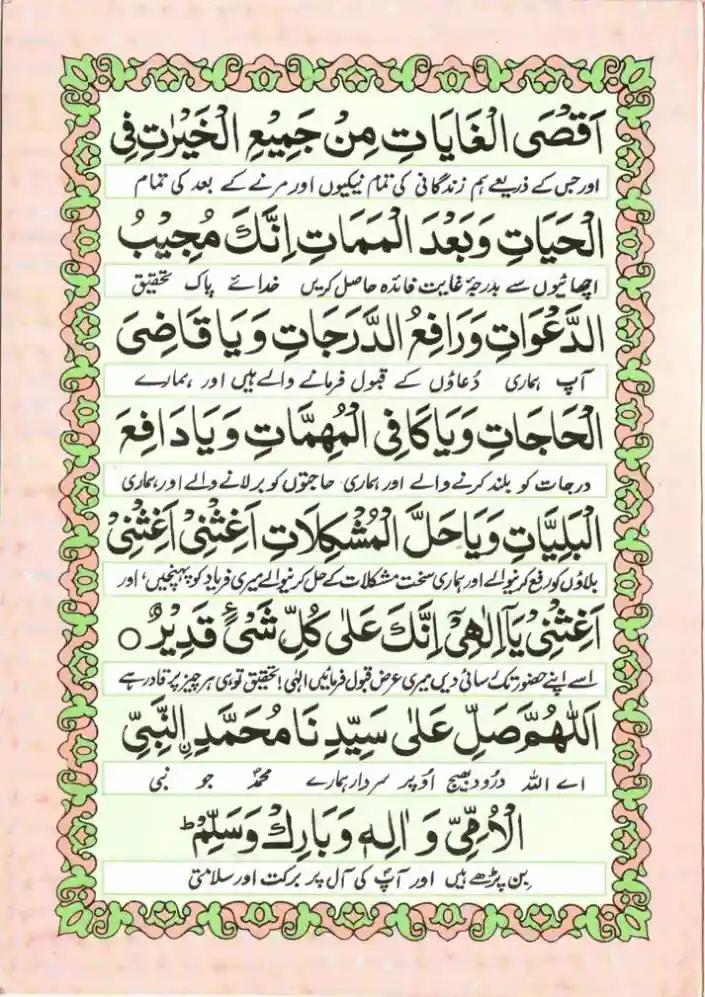 اَقْصَى الْغَايَاتِ مِنْ جَمِيْعِ الْخَيْرٰتِ فِي
اور جس کے ذریعے ہم زندگانی کی تمام نیکیوں اور مرنے کے بعد کی تمام
الْحَيَاتِ وَبَعْدَ الْمَمَاتِ اِنَّكَ مُجِيْبُ
اچھائیوں سے بدرجۂ غایت فائدہ حاصل کریں خدائے پاک تحقیق
الدَّعْوَاتِ وَرَافِعُ الدَّرَجَاتِ وَيَا قَاضِيَ
آپ ہماری دُعاؤں کے قبول فرمانے والے ہیں اور ہمارے
الْحَاجَاتِ وَيَا كَافِيَ الْمُهِمَّاتِ وَيَا دَافِعَ
درجات کو بلند کرنے والے اور ہماری حاجتوں کو بر لانے والے اور ہماری
الْبَلِيَّاتِ وَيَا حَلَّ الْمُشْكِلَاتِ اَغِثْنِيْ اَغِثْنِيْ
بلاؤں کو رفع کرنیوالے اور ہماری سخت مشکلات کے حل کرنیوالے میری فریاد کو پہنچیں، اور
اَغِثْنِيْ يَآ اِلٰهِيْٓ اِنَّكَ عَلٰى كُلِّ شَيْءٍ قَدِيْرٌ ○
اسے اپنے حضور تک رسائی دیں میری عرض قبول فرمائیں الٰہی! تحقیق تو ہی ہر چیز پر قادر ہے
اَللّٰهُمَّ صَلِّ عَلٰى سَيِّدِنَا مُحَمَّدِ نِ النَّبِيِّ
اے اللہ درُود بھیج اُوپر سردار ہمارے محمدؐ جو نبی
الْاُمِّيِّ وَاٰلِهٖ وَبَارِكْ وَسَلِّمْ ؕ
بِن پڑھے ہیں اور آپؐ کی آل پر برکت اور سلامتی